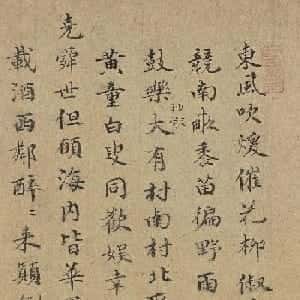 東風吹煖催花柳俶
競南畝黍苗徧野雨
鼓樂大有村南村北
黃童白叟同歡娛幸
堯舜世但願海內皆華
載酒西鄰醉〻來顛